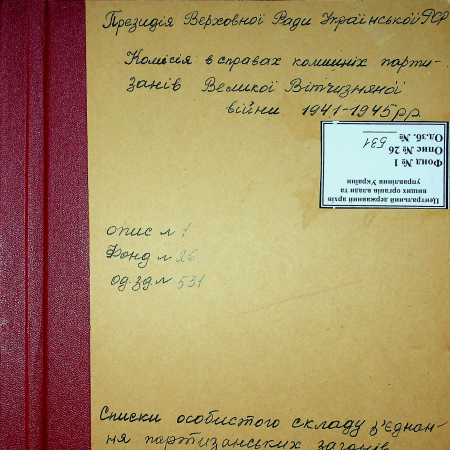 Президія Верховної Ради Української РСР
Комісія в справах колишніх парти-
занів Великої Вітчизняної
війни 1941-1945 рр
Центральний державний архів
вищих органів влади та
управління України
Фонд № 1
Опис № 26
Од.зб. № 531
опис № 1
Фонд № 26
од.зб № 531
Списки особистого складу з'єднан-
ня партизанських загонів